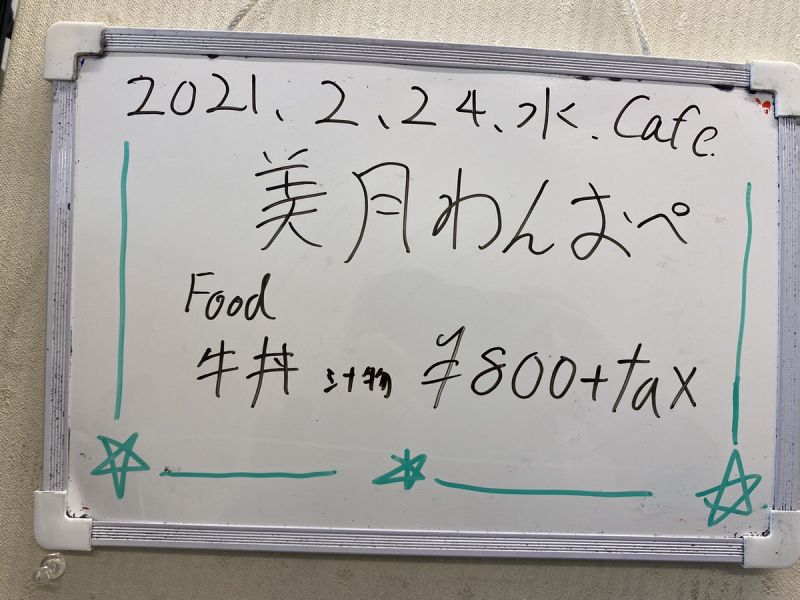 2021、2、24、水、Cafe.
美月わんおぺ
Food
牛丼 汁物 ¥800+tax